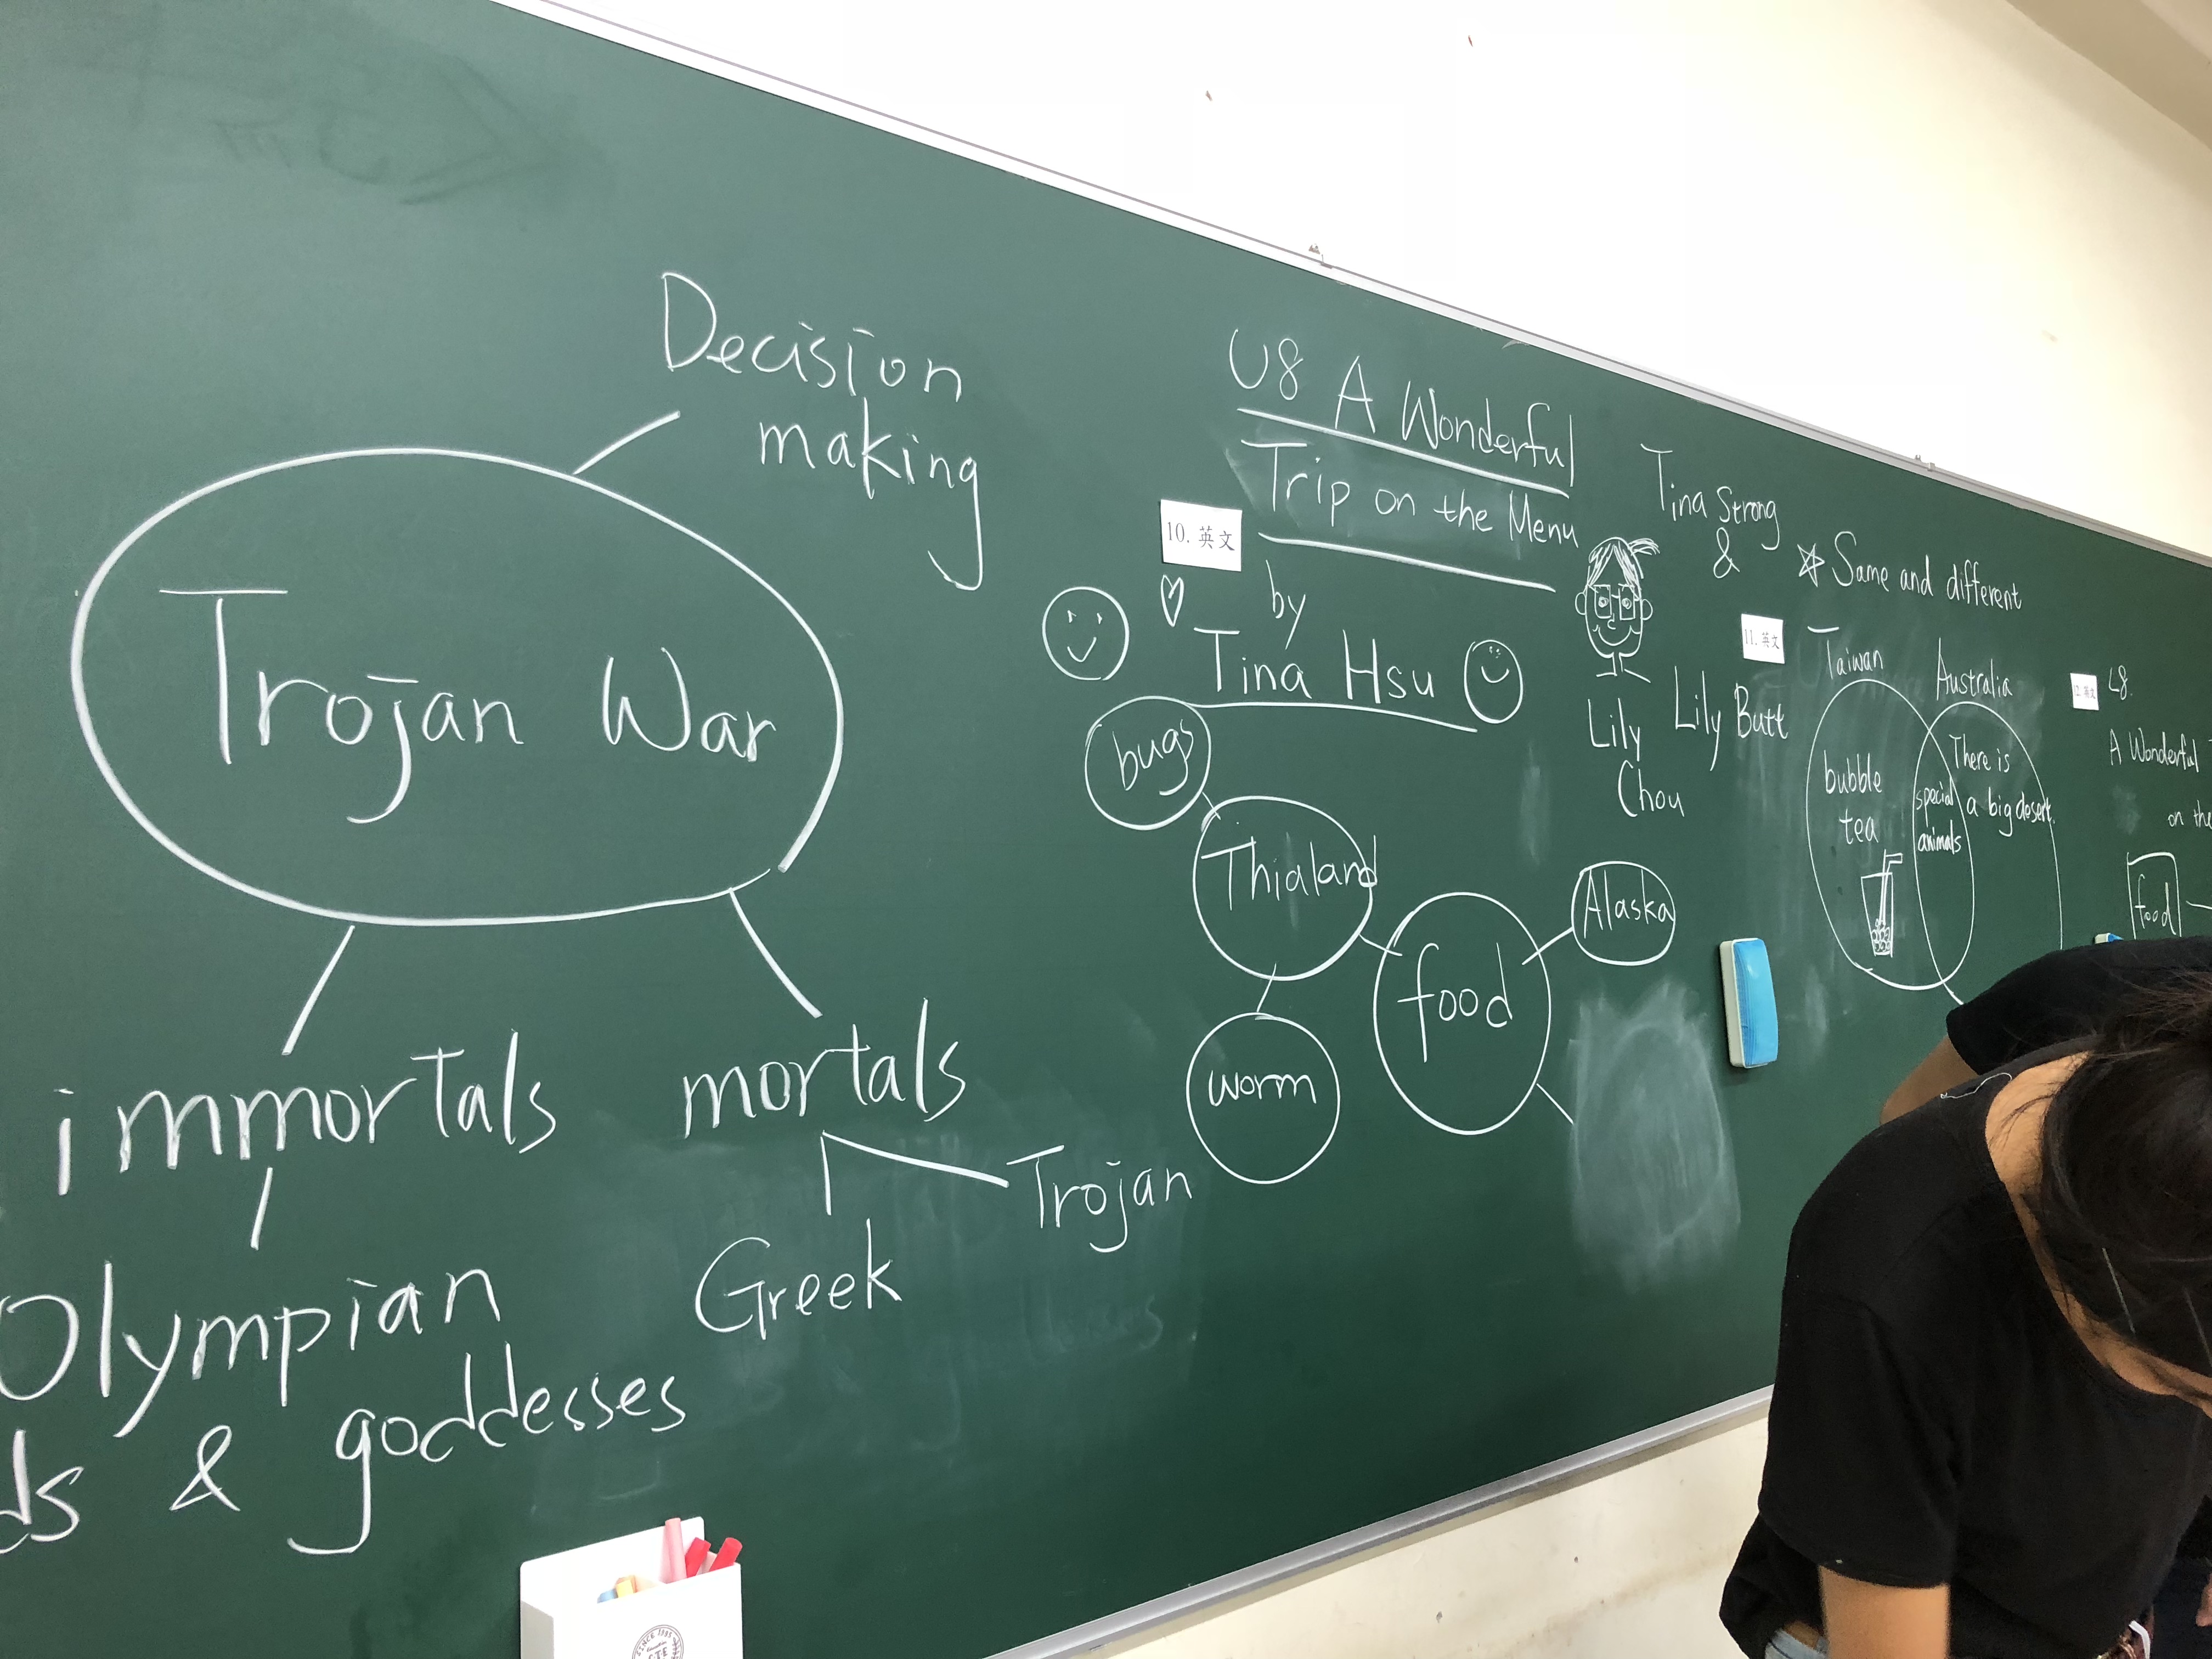 Decision
making
Trojan War
immortals
mortals
Trojan
Greek
Olympian
& goddesses
U8 A Wonderful
Trip on the Menu
10. 英文
by
Tina Hsu
bugs
Thialand
worm
food
Alaska
Tina Strong
&
Lily Butt
Lily
Chou
Same and different
11. 英文
Taiwan
Australia
bubble
tea
special
animals
There is
a big desert.
12. 英文
L8.
A Wonderful
on the
food
SINCE 1995